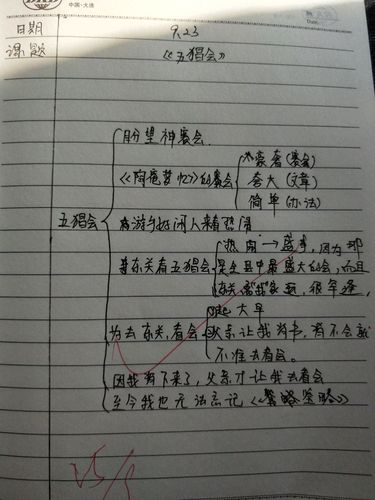 中国·大连
日期 9.23
课题 《五猖会》
盼望神赛会.
《陶庵梦忆》的赛会
豪奢(赛会)
夸大(文章)
简单(办法)
五猖会
热闹→盛事,因为那
东关有五猖会
是全县中最盛大的会,而且
东关离我家远,很
起大早
为去东关看会
父亲让我背书,背不会就
不准去看会。
因我背下来了,父亲才让我去看会
至今我也无法忘记《鉴略》